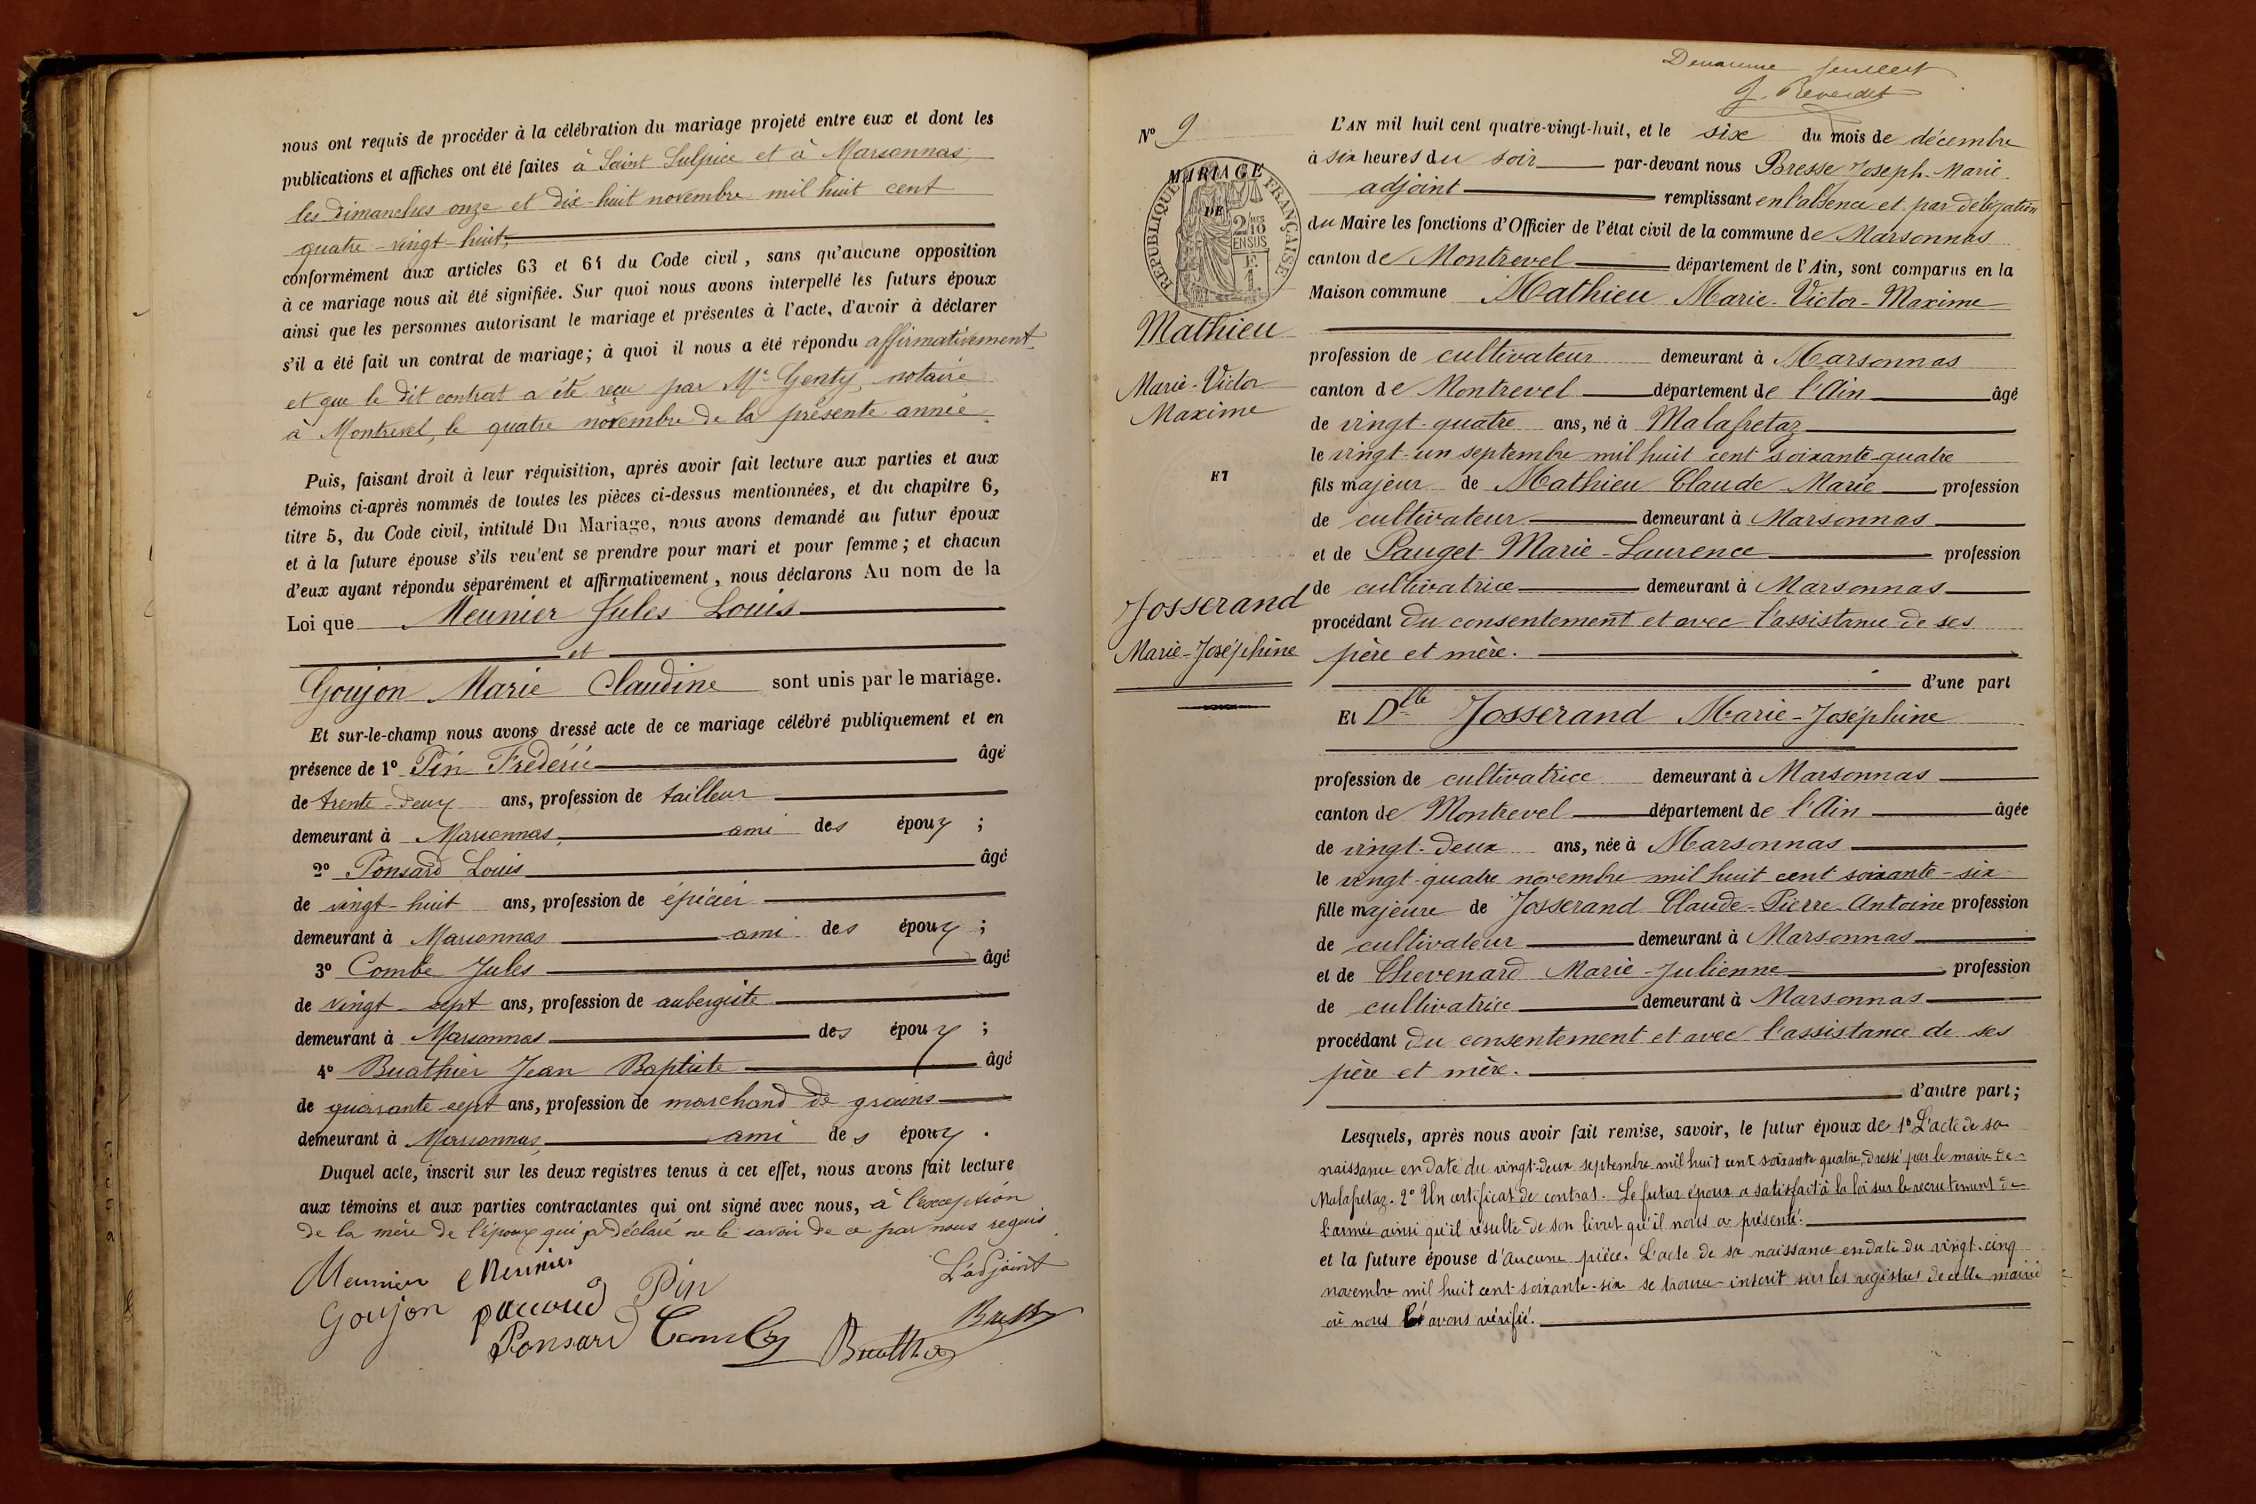 nous ont requis de procéder à la célébration du mariage projeté entre eux et dont les
publications et affiches ont été faites à Saint Sulpice et à Marsonnas,
les dimanches onze et dix-huit novembre mil huit cent
quatre-vingt-huit,
conformément aux articles 63 et 64 du Code civil, sans qu'aucune opposition
à ce mariage nous ait été signifiée. Sur quoi nous avons interpellé les futurs époux
ainsi que les personnes autorisant le mariage et présentes à l'acte, d'avoir à déclarer
s'il a été fait un contrat de mariage; à quoi il nous a été répondu affirmativement
et que le dit contrat a été reçu par Me Genty, notaire
à Montrevel, le quatre novembre de la présente année.
Puis, faisant droit à leur réquisition, après avoir fait lecture aux parties et aux
témoins ci-après nommés de toutes les pièces ci-dessus mentionnées, et du chapitre 6,
titre 5, du Code civil, intitulé Du Mariage, nous avons demandé au futur époux
et à la future épouse s'ils veu'ent se prendre pour mari et pour femme; et chacun
d'eux ayant répondu séparément et affirmativement, nous déclarons Au nom de la
Loi que Meunier Jules Louis
et
Goujon Marie Claudine sont unis par le mariage.
Et sur-le-champ nous avons dressé acte de ce mariage célébré publiquement et en
présence de 1° Pin Frédéric âgé
de trente-deux ans, profession de tailleur
demeurant à Marsonnas, ami des époux ;
2° Ponsard Louis âgé
de vingt-huit ans, profession de épicier
demeurant à Marsonnas ami des époux ;
3° Combe Jules âgé
de vingt-sept ans, profession de aubergiste
demeurant à Marsonnas des époux ;
4° Buathier Jean Baptiste âgé
de quarante-sept ans, profession de marchand de grains
demeurant à Marsonnas, ami des époux .
Duquel acte, inscrit sur les deux registres tenus à cet effet, nous avons fait lecture
aux témoins et aux parties contractantes qui ont signé avec nous, à l'exception
de la mère de l'époux qui a déclaré ne le savoir de ce par nous requis.
Meunier Meunier L'adjoint
Goujon pauoud Pin
Ponsard Comby Buathier Bresse
feuillet
J. Reverdet
N° 9
MARIAGE
RÉPUBLIQUE FRANÇAISE
DE
2/10 EN SUS
F. 1
Mathieu
Marie-Victor
Maxime
ET
Josserand
Marie-Joséphine
L'AN mil huit cent quatre-vingt-huit, et le six du mois de décembre
à six heures du soir par-devant nous Bresse Joseph-Marie
adjoint remplissant en l'absence et par délégation
du Maire les fonctions d'Officier de l'état civil de la commune de Marsonnas
canton de Montrevel département de l'Ain, sont comparus en la
Maison commune Mathieu Marie-Victor-Maxime
profession de cultivateur demeurant à Marsonnas
canton de Montrevel département de l'Ain âgé
de vingt-quatre ans, né à Malafretaz
le vingt-un septembre mil huit cent soixante-quatre
fils majeur de Mathieu Claude Marie profession
de cultivateur demeurant à Marsonnas
et de Pauget Marie-Laurence profession
de cultivatrice demeurant à Marsonnas
procédant du consentement et avec l'assistance de ses
père et mère.
d'une part
Et Dlle Josserand Marie-Joséphine
profession de cultivatrice demeurant à Marsonnas
canton de Montrevel département de l'Ain âgée
de vingt-deux ans, née à Marsonnas
le vingt-quatre novembre mil huit cent soixante-six
fille majeure de Josserand Claude-Pierre-Antoine profession
de cultivateur demeurant à Marsonnas
et de Chevenard Marie-Julienne profession
de cultivatrice demeurant à Marsonnas
procédant du consentement et avec l'assistance de ses
père et mère.
d'autre part;
Lesquels, après nous avoir fait remise, savoir, le futur époux de 1° L'acte de sa
naissance en date du vingt-deux septembre mil huit cent soixante quatre, dressé par le maire de
Malafretaz. 2° Un certificat de contrat. Le futur époux a satisfait à la loi sur le recrutement de
l'armée ainsi qu'il résulte de son livret qu'il nous a présenté.
et la future épouse d'aucune pièce. L'acte de sa naissance en date du vingt-cinq
novembre mil huit cent soixante-six se trouve inscrit sur les registres de cette mairie
où nous l'avons vérifié.